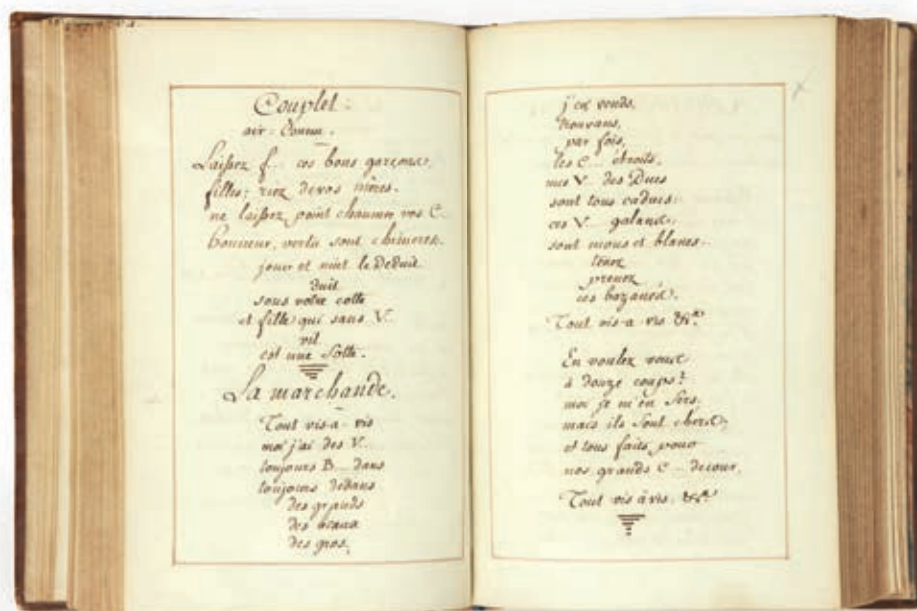 Couplet.
air: Connu.
Laissez f... ces bons garçons,
filles; riez de vos mères.
ne laissez point chaumer vos C...
honneur, vertu sont chimeres.
jour et nuit le Deduit
Duit
sous votre cotte
et fille qui sans V...
vit
est une Sotte.
La marchande.
Tout vis-à-vis
moi j'ai des V...
toujours B... dans
toujours dedans
des grands
des beaux
des gros,
j'en vends,
trouvans,
par fois,
les C... étroits,
mes V... des Ducs
sont tous caducs;
ces V... galans
sont mous et blancs.
tenez
prenez
ces bazanés.
Tout vis-a-vis &c.a
En voulez vous
à douze coups?
moi je m'en Sers
mais ils Sont chers,
et tous faits pour
nos grands C... decour,
Tout vis à vis, &c.a